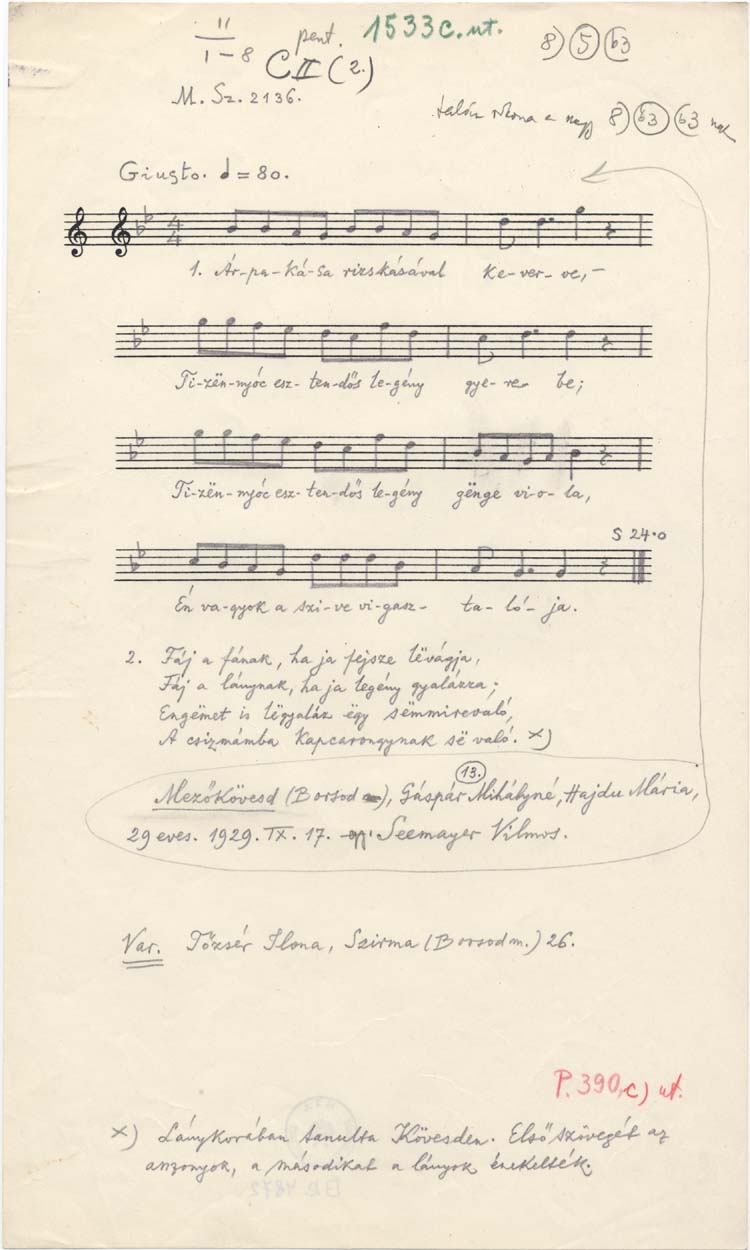 11
1-8
pent.
1533c. ut.
8) 5 b3
C II (2.)
M. Sz. 2136.
talán rokona a nagy 8) b3 b3 nak
Giusto. = 80.
4
4
1. Ár-pa-ká-sa rizskásával ke-ver-ve,-
Ti-zën-nyóc esz-ten-dős le-gény gye-re be;
Ti-zën-nyóc esz-ten-dős le-gény gënge vi-o-la,
S 24.0
Én va-gyok a szi-ve vi-gasz-ta-ló-ja.
2. Fáj a fának, ha ja fejsze lëvágja,
Fáj a lánynak, ha ja legény gyalázza;
Engëmet is lëgyaláz ëgy sëmmirevaló,
A csizmámba kapcarongynak së való. x)
13.
Mezőkövesd (Borsod), Gáspár Mihályné, Hajdu Mária,
29 eves. 1929. IX. 17. Seemayer Vilmos.
Var. Tőzsér Ilona, Szirma (Borsod m.) 26.
P. 390, c) ut.
x) Lánykorában tanulta Kövesden. Első szövegét az
asszonyok, a másodikat a lányok énekelték.